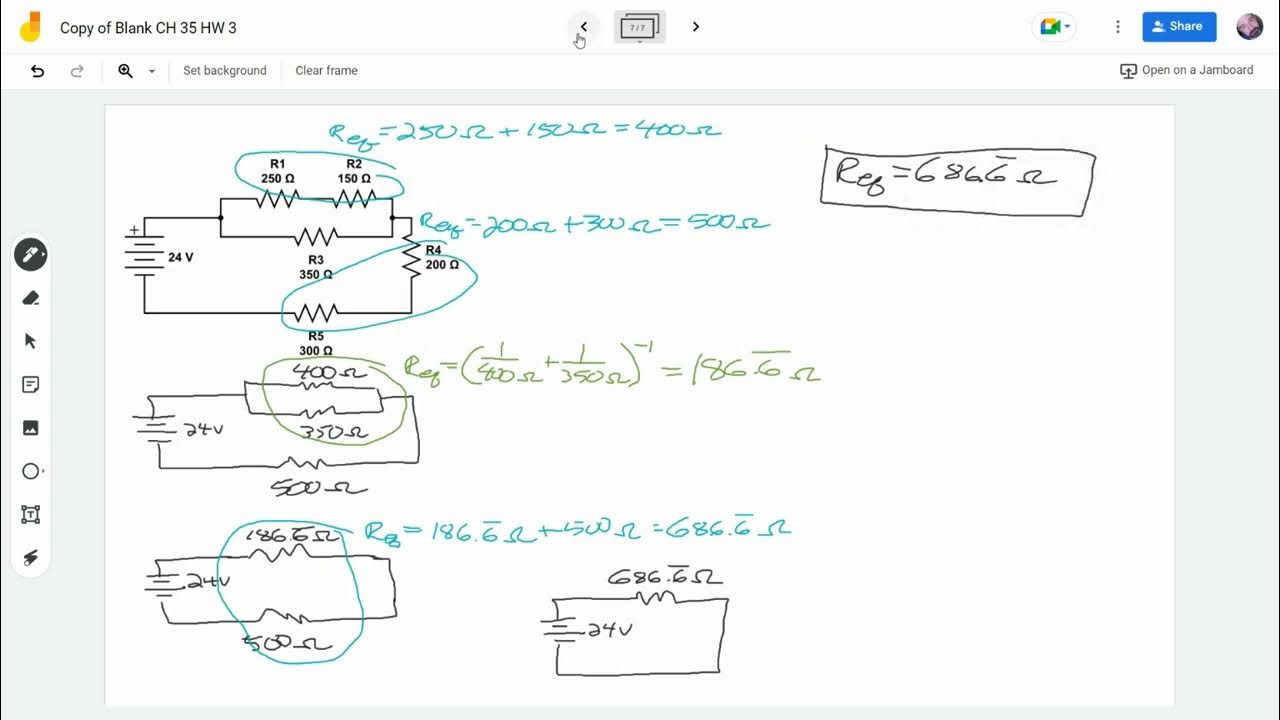 Copy of Blank CH 35 HW 3
7 / 7
Share
Set background
Clear frame
Open on a Jamboard
Req = 250Ω + 150Ω = 400Ω
R1
250 Ω
R2
150 Ω
Req = 686.6̅ Ω
Req = 200Ω + 300Ω = 500Ω
+
24 V
R3
350 Ω
R4
200 Ω
R5
300 Ω
400Ω
Req = (1/400Ω + 1/350Ω)⁻¹ = 186.6̅ Ω
24V
350Ω
500Ω
186.6̅Ω
Req = 186.6̅ Ω + 500Ω = 686.6̅ Ω
24V
500Ω
686.6̅Ω
24V